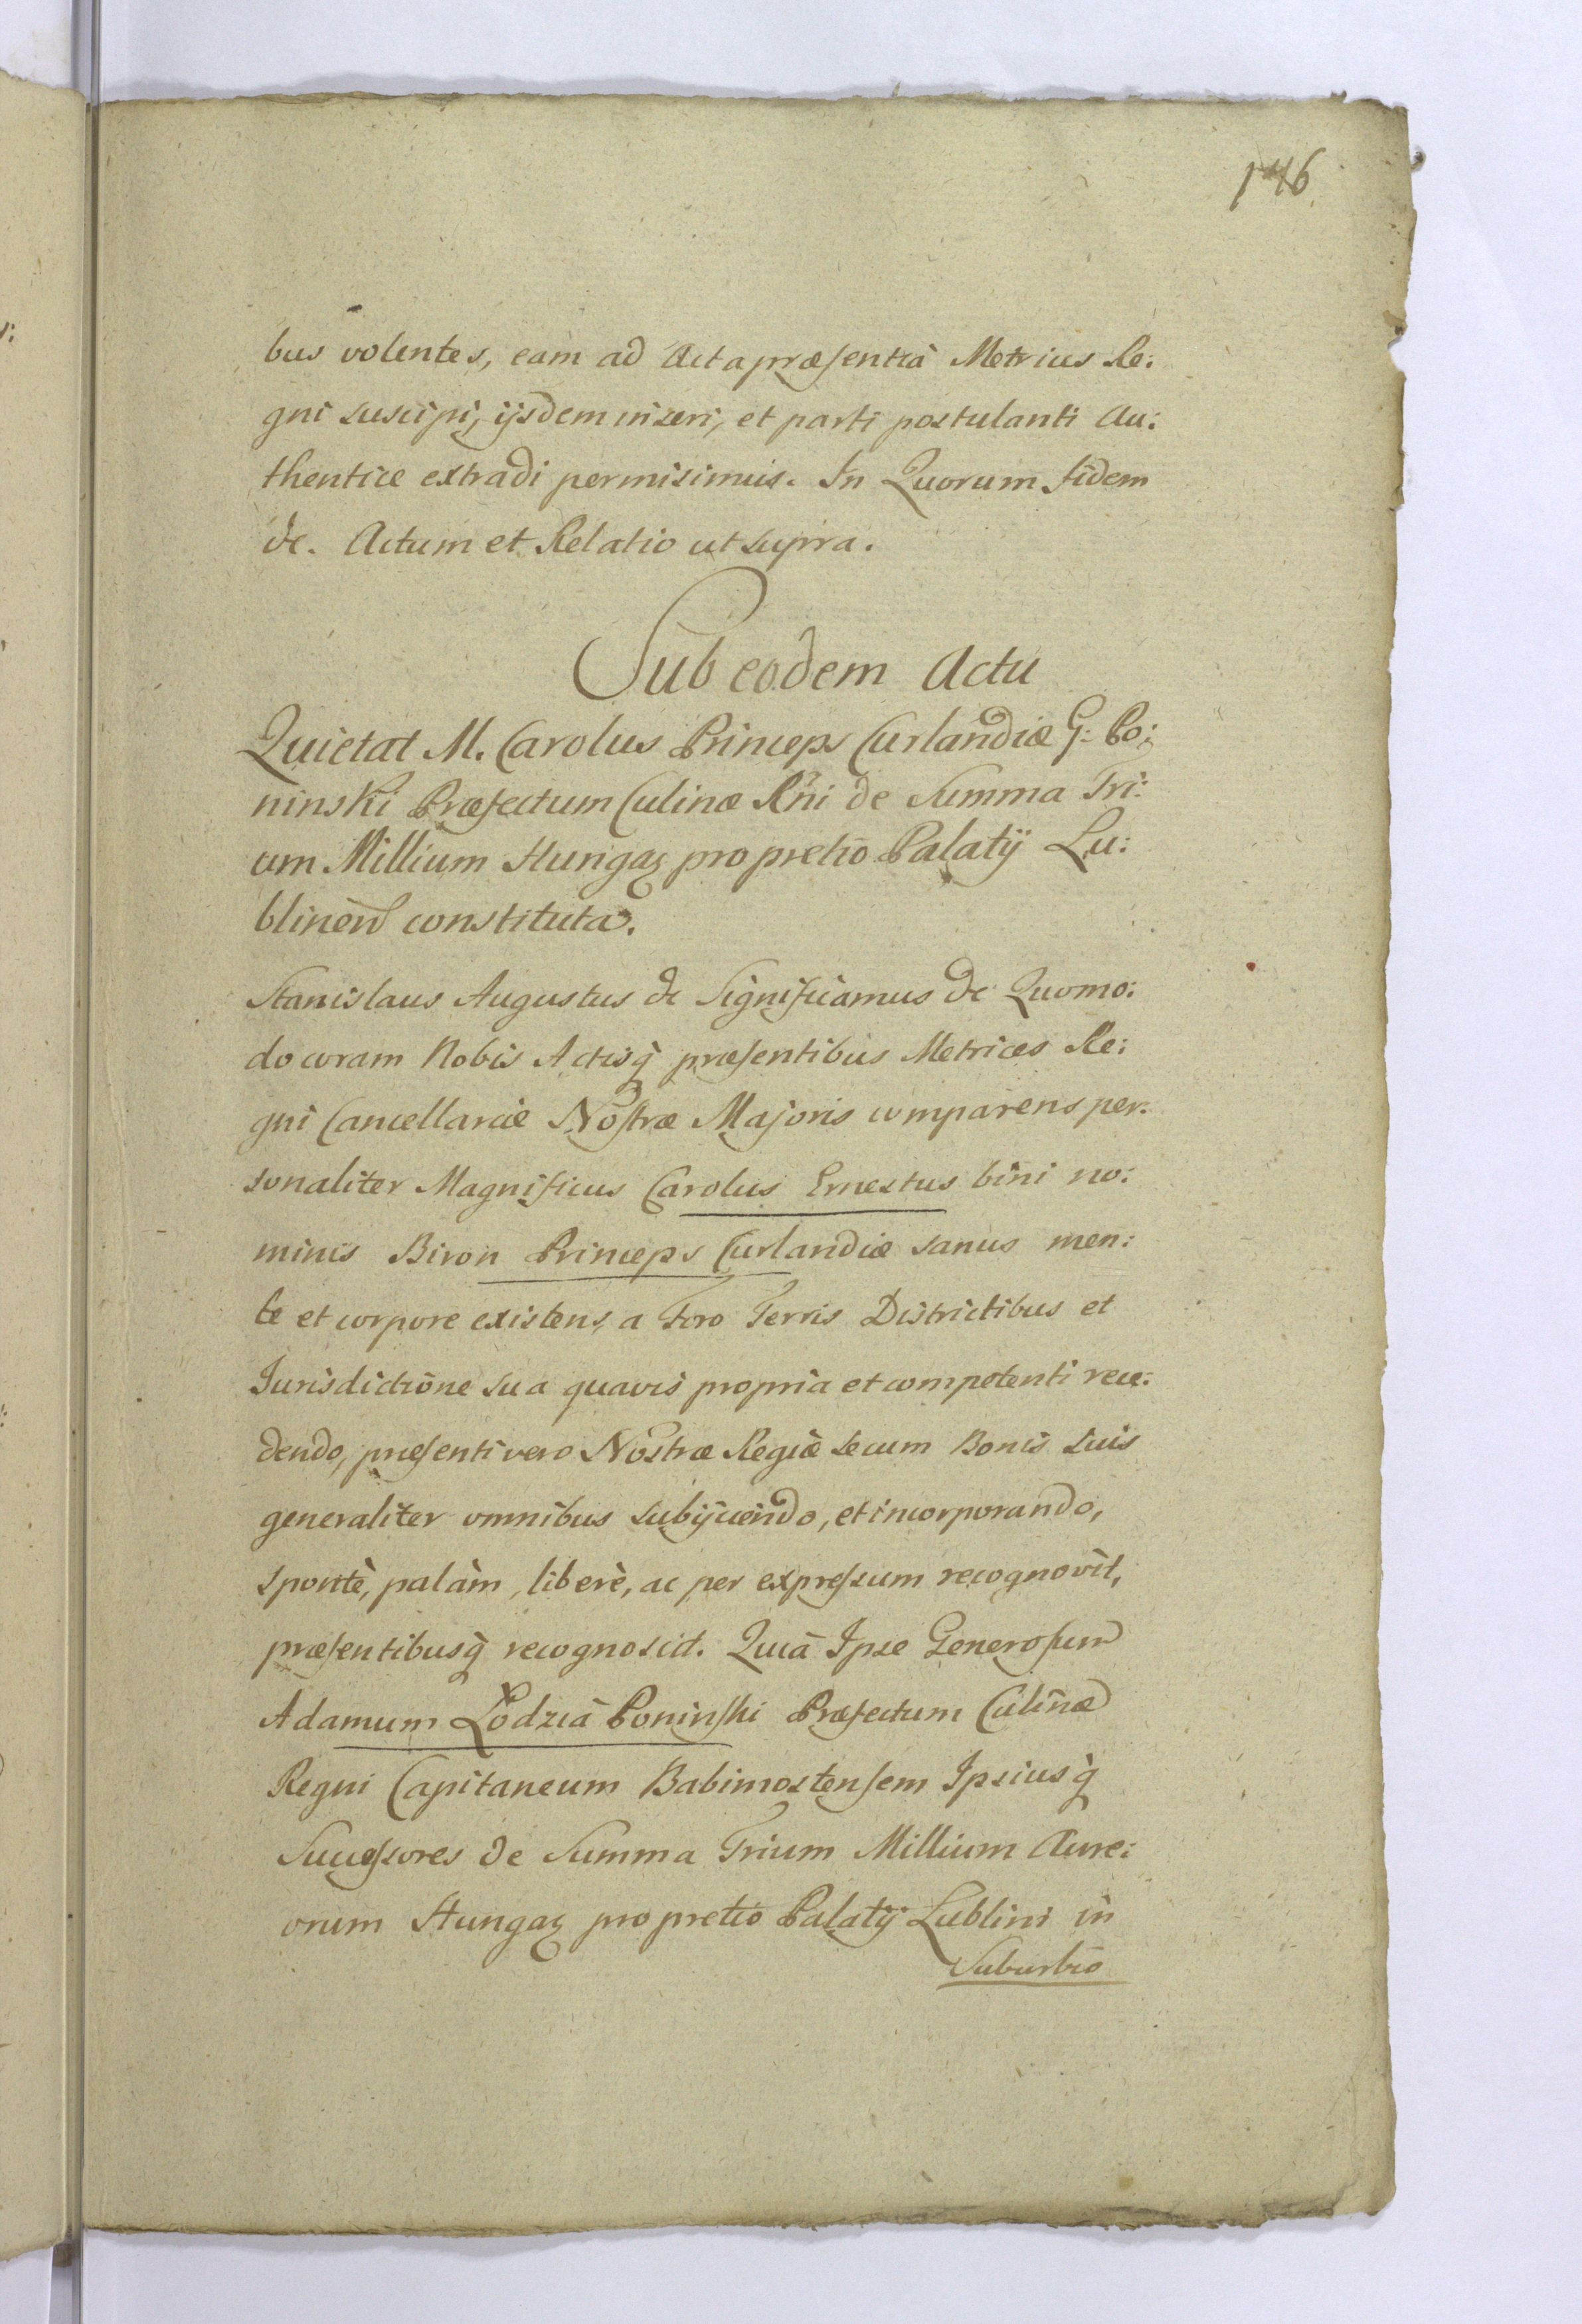 146
bus volentes, eam ad Acta præsentia Metrices Re:
gni suscipi, ijsdem inseri, et parti postulanti Au:
thentice extradi permisimus. In Quorum fidem
&c. Actum et Relatio ut supra.
Sub eodem Actu
Quietat M. Carolus Princeps Curlandiæ G: Po:
ninski Præfectum Culinæ Rñi de Summa Tri:
um Millium Hungaꝝ pro pretio Palatij Lu:
blinen constituta.
Stanislaus Augustus &c Significamus &c Quomo:
do coram Nobis Actisq̀ præsentibus Metrices Re:
gni Cancellariæ Nostræ Majoris comparens per:
sonaliter Magnificus Carolus Ernestus bini no:
minis Biron Princeps Curlandiæ sanus men:
te et corpore existens, a Foro Terris Districtibus et
Jurisdictione sua quavis propria et competenti rece:
dendo, præsenti vero Nostræ Regiæ secum Bonis suis
generaliter omnibus subijciendo, et incorporando,
spontè, palàm, liberè, ac per expressum recognovit,
præsentibusq̀ recognoscit. Quia Ipse Generosum
Adamum Łodzia Poninski Præfectum Culinæ
Regni Capitaneum Babimostensem Ipsiusq̀
Successores de Summa Trium Millium Aure:
orum Hungaꝝ pro pretio Palatij Lublini in
Suburbio